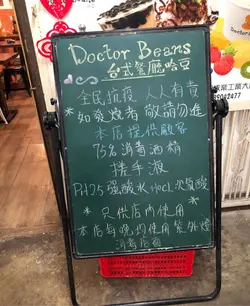 Doctor Beans
台式餐廳哈豆
全民抗疫 人人有責
*如發燒者 敬請勿進
本店提供顧客
75%消毒酒精
搓手液
PH2.5強酸水HCL次氯酸
*只供店內使用
本店每晚均使用紫外燈
消毒店面